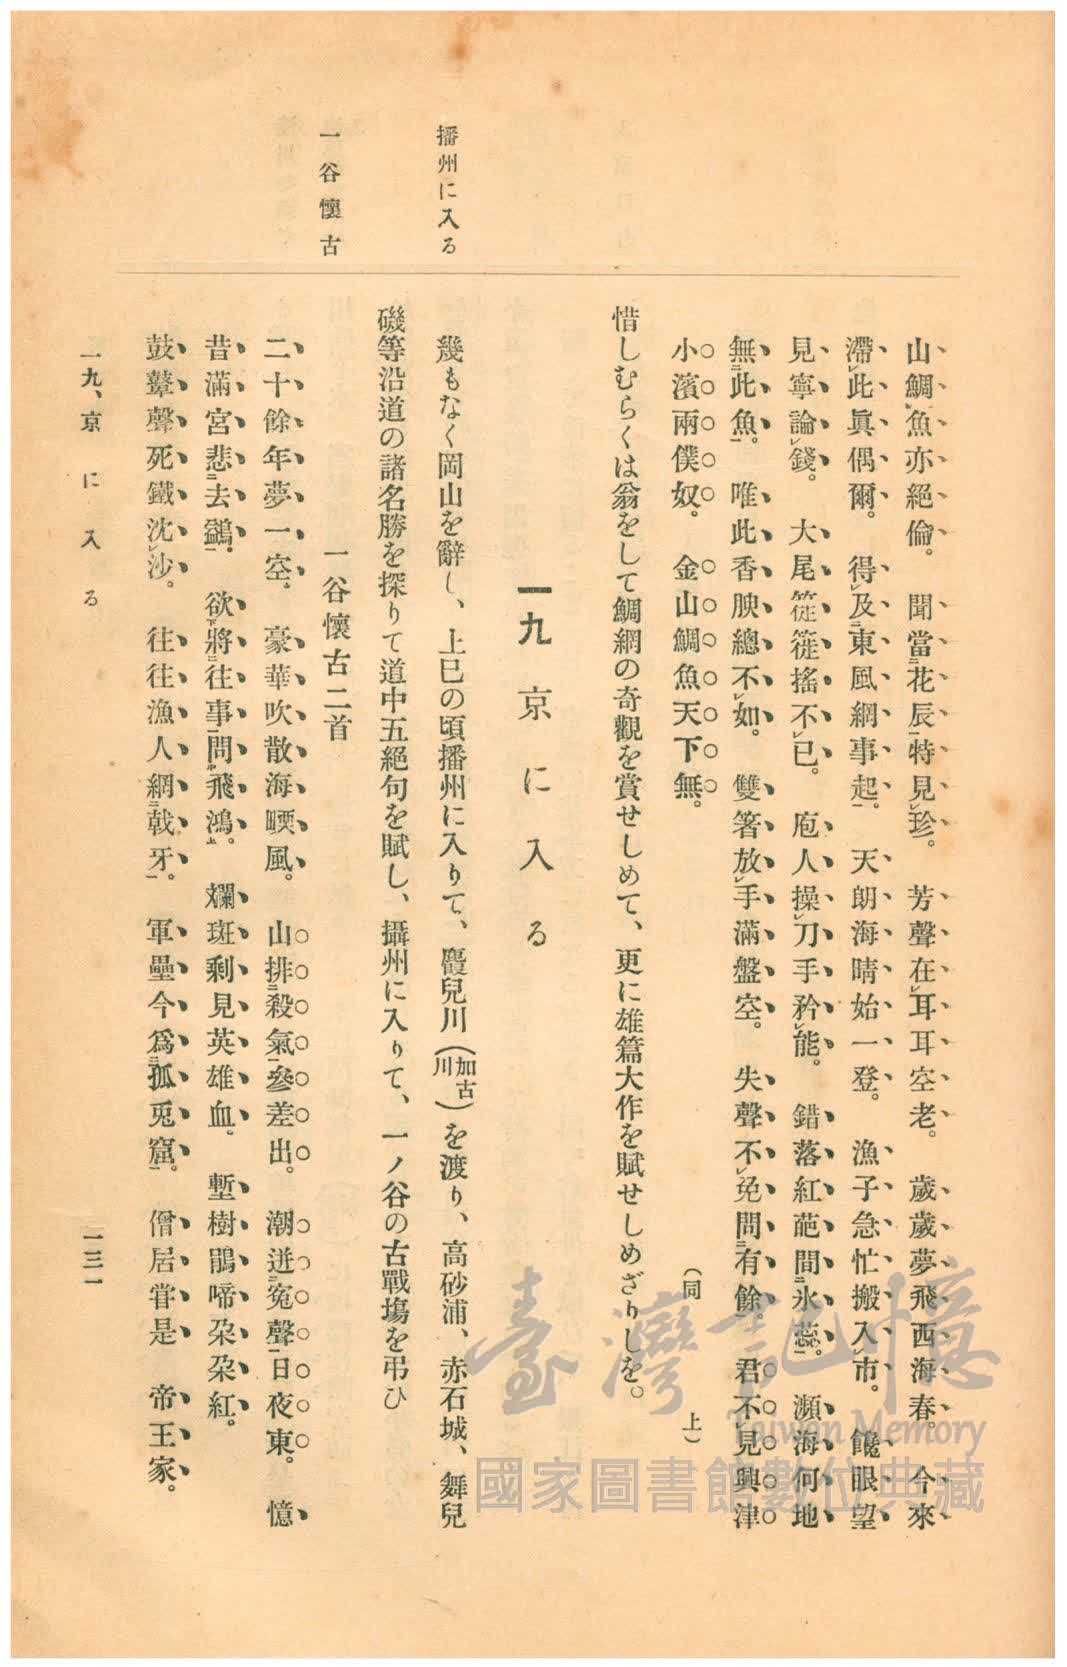 播州に入る
一谷懷古
山鯛魚亦絕倫。聞當花辰特見珍。芳聲在耳耳空老。歲歲夢飛西海春。今來
滯此眞偶爾。得及東風網事起。天朗海晴始一登。漁子急忙搬入市。饞眼望
見寧論錢。大尾簁簁搖不已。庖人操刀手矜能。錯落紅葩間氷蕊。瀕海何地
無此魚。唯此香腴總不如。雙箸放手滿盤空。失聲不免問有餘。君不見興津
小濱兩僕奴。金山鯛魚天下無。（同上）
惜しむらくは翁をして鯛網の奇觀を賞せしめて、更に雄篇大作を賦せしめざりしを。
一九 京に入る
幾もなく岡山を辭し、上巳の頃播州に入りて、麑兒川（加古川）を渡り、高砂浦、赤石城、舞兒
磯等沿道の諸名勝を探りて道中五絕句を賦し、攝州に入りて、一ノ谷の古戰場を弔ひ
一谷懷古二首
二十餘年夢一空。豪華吹散海暝風。山排殺氣參差出。潮迸冤聲日夜東。憶
昔滿宮悲去鷁。欲將往事問飛鴻。斕斑剩見英雄血。塹樹鵑啼朶朶紅。
鼓鼙聲死鐵沈沙。往往漁人網戟牙。軍壘今爲孤兎窟。僧居甞是 帝王家。
一九、京に入る
一三一
臺灣記憶
Taiwan Memory
國家圖書館數位典藏